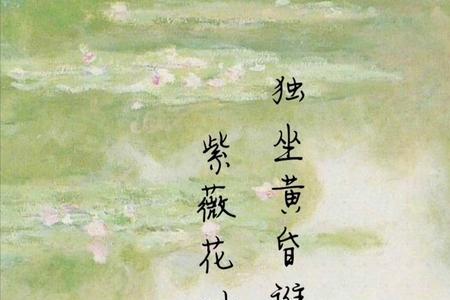 独坐黄昏
紫薇花